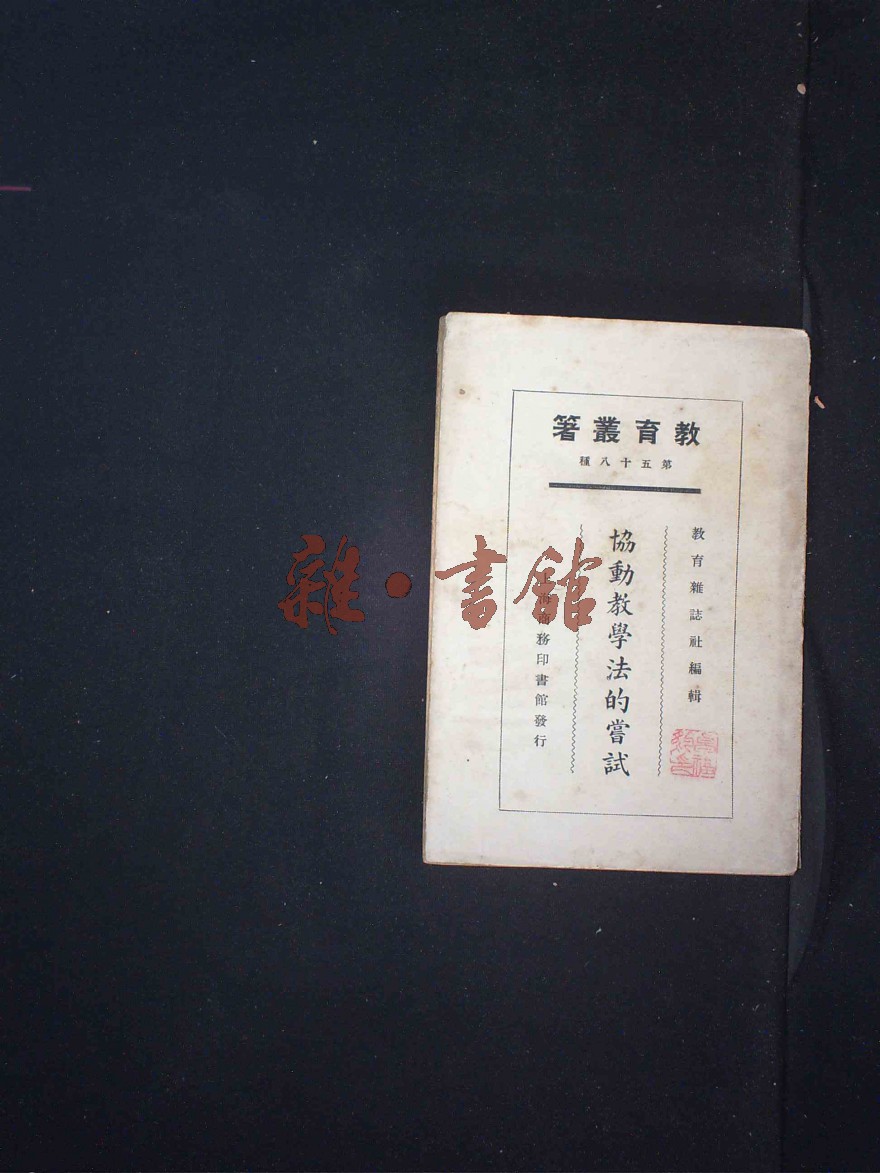 教育叢著
第五十八種
教育雜誌社編輯
協動教學法的嘗試
商務印書館發行
雜·書館